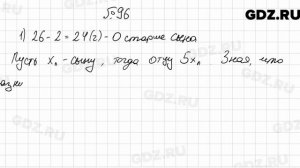 GDZ.RU
№96
1) 26-2=24(г)-О старше сына
Пусть x л - сыну, тогда отцу 5x л Зная, что